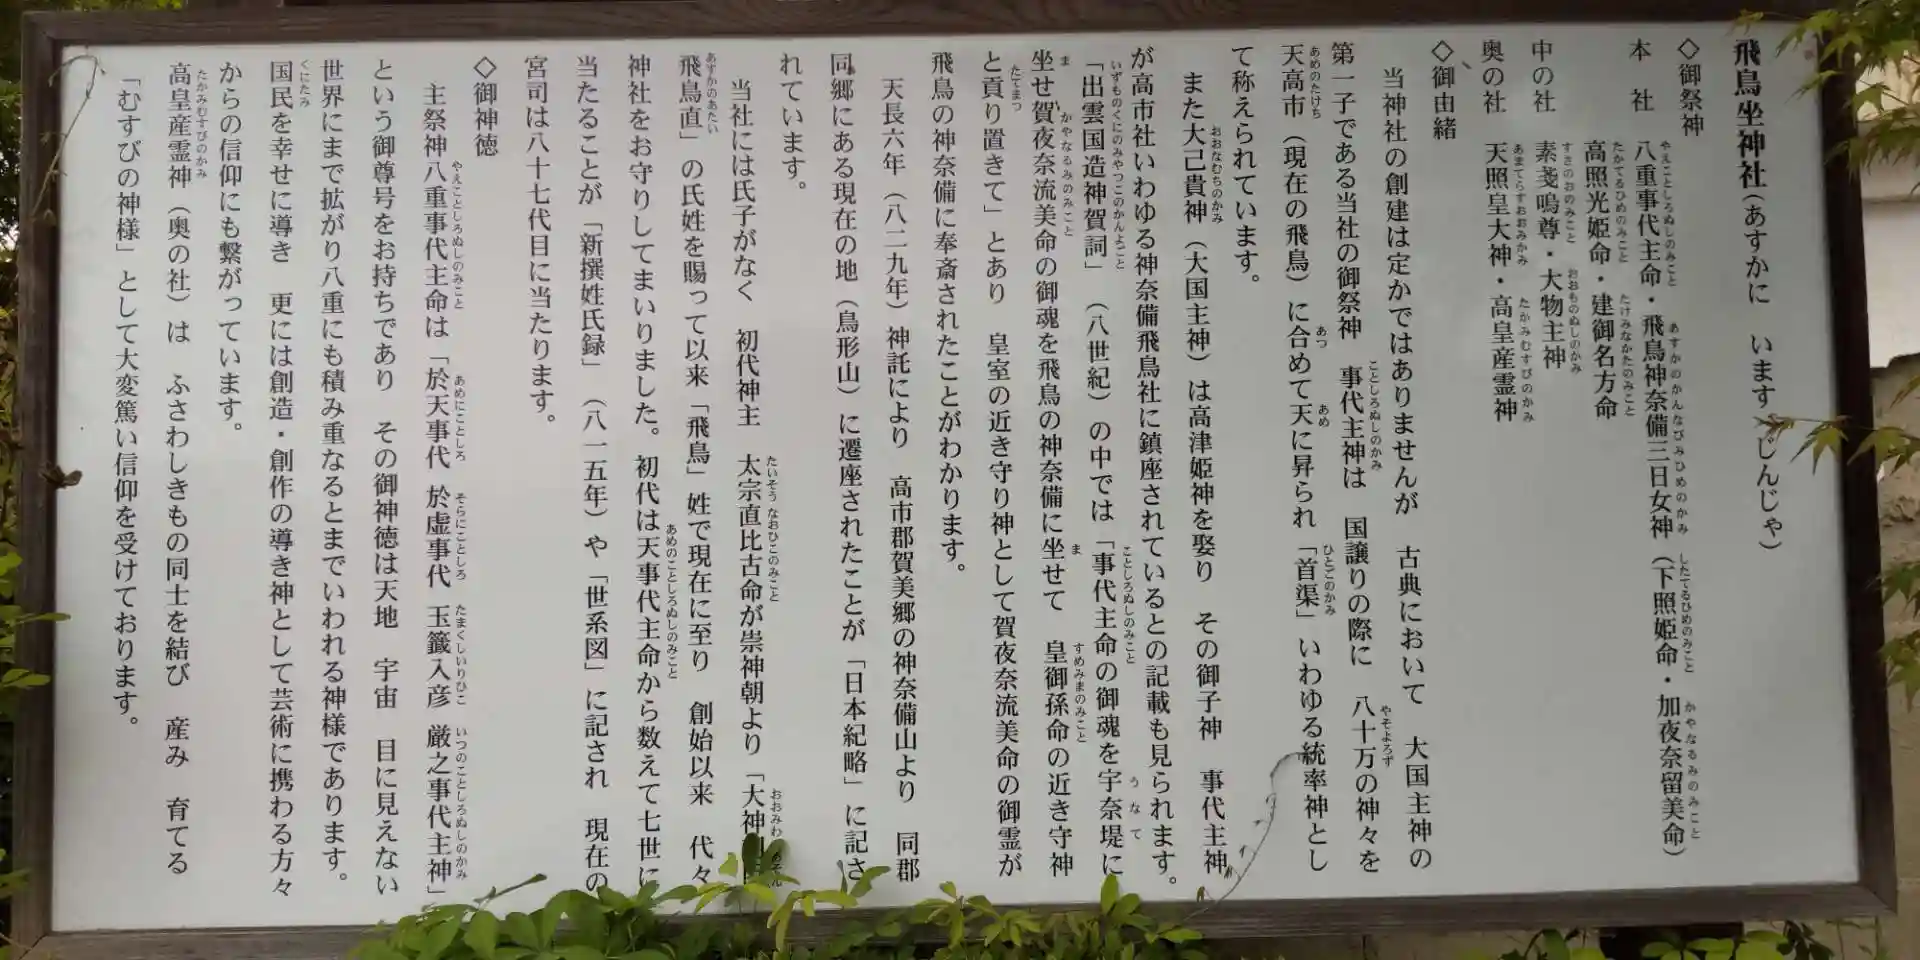 飛鳥坐神社(あすかに います じんじゃ)
◇御祭神
本 社 八重事代主命・飛鳥神奈備三日女神(下照姫命・加夜奈留美命)
高照光姫命・建御名方命
中の社 素戔嗚尊・大物主神
奥の社 天照皇大神・高皇産霊神
◇御由緒
当神社の創建は定かではありませんが 古典において 大国主神の
第一子である当社の御祭神 事代主神は 国譲りの際に 八十万の神々を
天高市(現在の飛鳥)に合めて天に昇られ「首渠」いわゆる統率神とし
て称えられています。
また大己貴神(大国主神)は高津姫神を娶り その御子神 事代主神
が高市社いわゆる神奈備飛鳥社に鎮座されているとの記載も見られます。
「出雲国造神賀詞」(八世紀)の中では「事代主命の御魂を宇奈堤に
坐せ賀夜奈流美命の御魂を飛鳥の神奈備に坐せて 皇御孫命の近き守神
と貢り置きて」とあり 皇室の近き守り神として賀夜奈流美命の御霊が
飛鳥の神奈備に奉斎されたことがわかります。
天長六年(八二九年)神託により 高市郡賀美郷の神奈備山より 同郡
同郷にある現在の地(鳥形山)に遷座されたことが「日本紀略」に記さ
れています。
当社には氏子がなく 初代神主 太宗直比古命が崇神朝より「大神
飛鳥直」の氏姓を賜って以来「飛鳥」姓で現在に至り 創始以来 代々
神社をお守りしてまいりました。初代は天事代主命から数えて七世に
当たることが「新撰姓氏録」(八一五年)や「世系図」に記され 現在の
宮司は八十七代目に当たります。
◇御神徳
主祭神八重事代主命は「於天事代 於虚事代 玉籤入彦 厳之事代主神」
という御尊号をお持ちであり その御神徳は天地 宇宙 目に見えない
世界にまで拡がり八重にも積み重なるとまでいわれる神様であります。
国民を幸せに導き 更には創造・創作の導き神として芸術に携わる方々
からの信仰にも繋がっています。
高皇産霊神(奥の社)は ふさわしきもの同士を結び 産み 育てる
「むすびの神様」として大変篤い信仰を受けております。